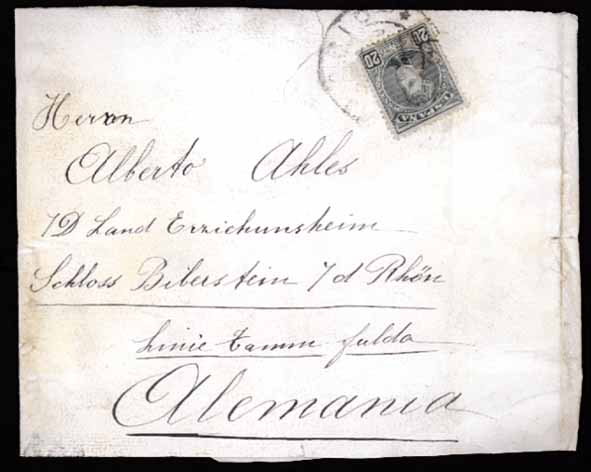 20 20
ESPAÑA
Herron
Alberto Ahles
7D Land Erzichunsheim
Schloss Biberstein 7 d Rhön
Linie Tamm fulda
Alemania